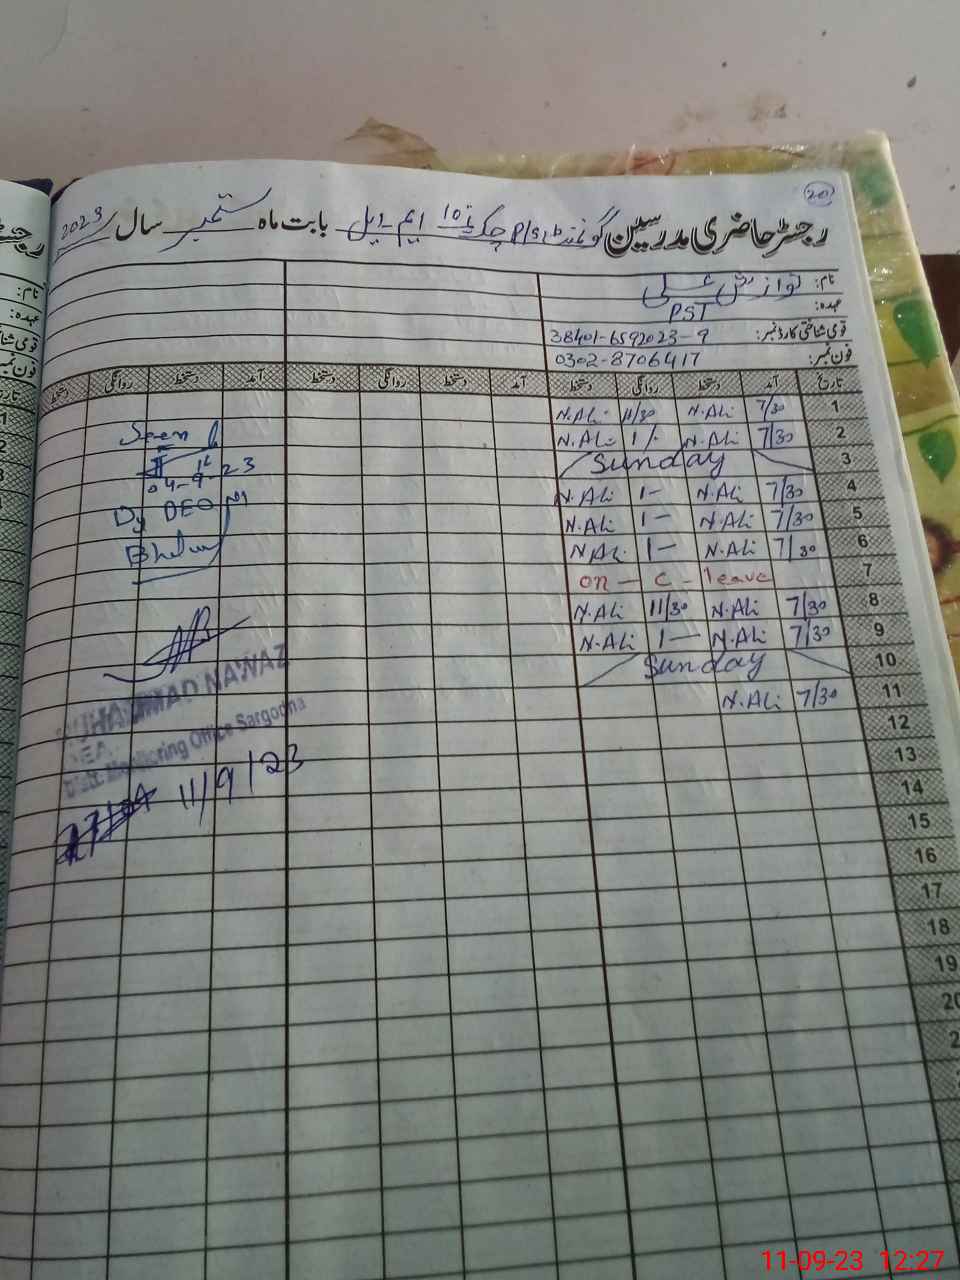 20
رجسٹر حاضری مدرسین گورنمنٹ P/S چک 10 ایم ایل بابت ماہ ستمبر سال 2023
نام: نوازش علی
عہدہ: PST
قومی شناختی کارڈ نمبر: 38401-6592023-9
فون نمبر: 0302-8706417
تاریخ آمد دستخط روانگی دستخط آمد دستخط روانگی دستخط آمد دستخط روانگی دستخط
1 7/30 N.Ali 11/30 N.Ali
2 7/30 N.Ali 1/- N.Ali
3 Sunday
4 7/30 N.Ali 1- N.Ali
5 7/30 N.Ali 1- N.Ali
6 7/30 N.Ali 1- N.Ali
7 on - C - leave
8 7/30 N.Ali 11/30 N.Ali
9 7/30 N.Ali 1- N.Ali
10 Sunday
11 7/30 N.Ali
12
13
14
15
16
17
18
19
20
Seen
04-9-23
Dy DEO
MUHAMMAD NAWAZ
MEA
Distt. Monitoring Office Sargodha
11/9/23
رجسٹر
نام:
عہدہ:
فون نمبر
تاریخ
11-09-23 12:27